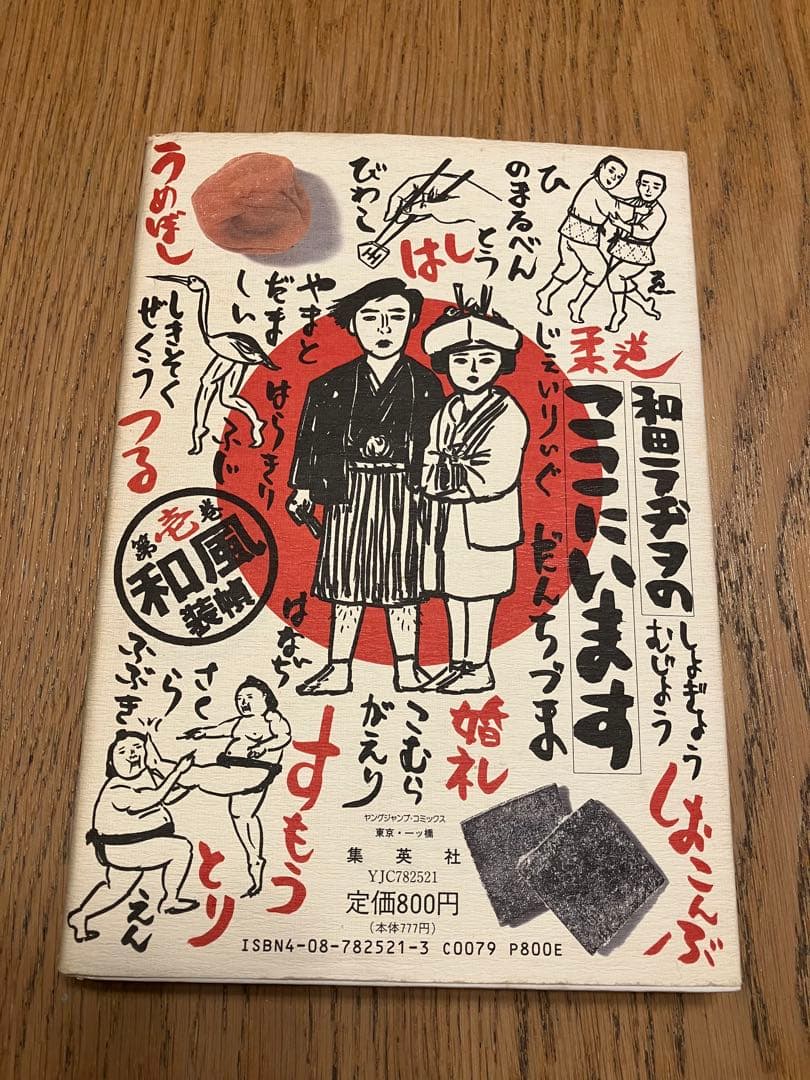 ひ
のまるべん
とう
びわこ
はし
うめぼし
ゑ
柔道
和田ラヂヲの
ここにいます
じぇいりぃぐ
やまと
だま
しい
しきそく
ぜくう
つる
はらきり
ふじ
第壱巻
和風
装幀
だんちづま
しょぎょう
むじょう
はなぢ
さく
ら
ふぶき
すもう
とり
えん
こむら
がえり
婚礼
しおこんぶ
ヤングジャンプ・コミックス
東京・一ッ橋
集英社
YJC782521
定価800円
(本体777円)
ISBN4-08-782521-3 C0079 P800E